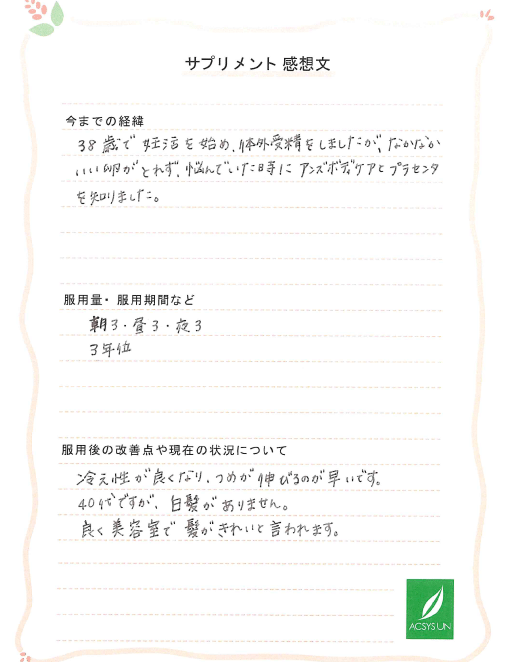 サプリメント 感想文
今までの経緯
38歳で 妊活を始め、体外受精をしましたが、なかなか
いい卵がとれず、悩んでいた時に アンズボディケアとプラセンタ
を知りました。
服用量・服用期間など
朝3・昼3・夜3
3年位
服用後の改善点や現在の状況について
冷え性が良くなり、つめが伸びるのが早いです。
40代ですが、白髪がありません。
良く美容室で髪がきれいと言われます。
ACSYS UN